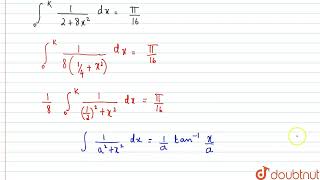 ∫₀ᴷ 1/(2+8x²) dx = π/16
∫₀ᴷ 1/(8(1/4 + x²)) dx = π/16
1/8 ∫₀ᴷ 1/((1/2)²+x²) dx = π/16
∫ 1/(a²+x²) dx = 1/a tan⁻¹ x/a
doubtnut